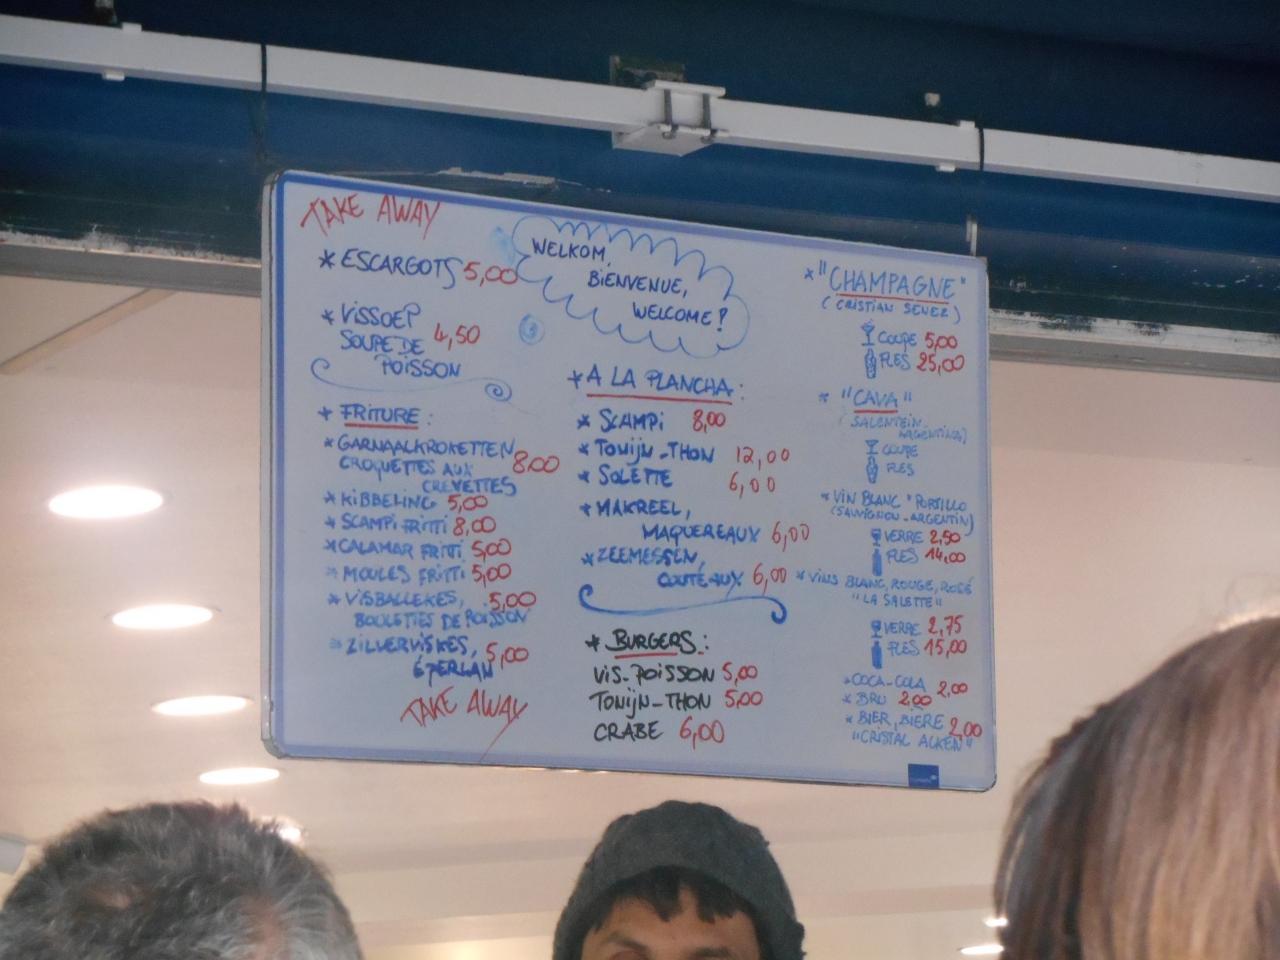 TAKE AWAY
* ESCARGOTS 5,00
* VISSOEP
SOUPE DE 4,50
POISSON
* FRITURE :
* GARNAALKROKETTEN
CROQUETTES AUX 8,00
CREVETTES
* KIBBELING 5,00
* SCAMPI FRITTI 8,00
* CALAMAR FRITTI 5,00
* MOULES FRITTI 5,00
* VISBALLEKES, 5,00
BOULETTES DE POISSON
* ZILVERVISKES, 5,00
ÉPERLAN
TAKE AWAY
WELKOM,
BIENVENUE,
WELCOME!
* A LA PLANCHA :
* SCAMPI 8,00
* TONIJN-THON 12,00
* SOLETTE 6,00
* MAKREEL,
MAQUEREAUX 6,00
* ZEEMESSEN,
COUTÉAUX 6,00
* BURGERS :
VIS-POISSON 5,00
TONIJN-THON 5,00
CRABE 6,00
* "CHAMPAGNE"
(CRISTIAN SENEZ)
COUPE 5,00
FLES 25,00
* "CAVA"
(SALENTEIN-
ARGENTINA)
COUPE
FLES
* VIN BLANC "PORTILLO
(SAUVIGNON-ARGENTIN)
VERRE 2,50
FLES 14,00
* VINS BLANC, ROUGE, ROSÉ
"LA SALETTE"
VERRE 2,75
FLES 15,00
* COCA-COLA 2,00
* BRU 2,00
* BIER, BIÈRE 2,00
"CRISTAL ALKEN"